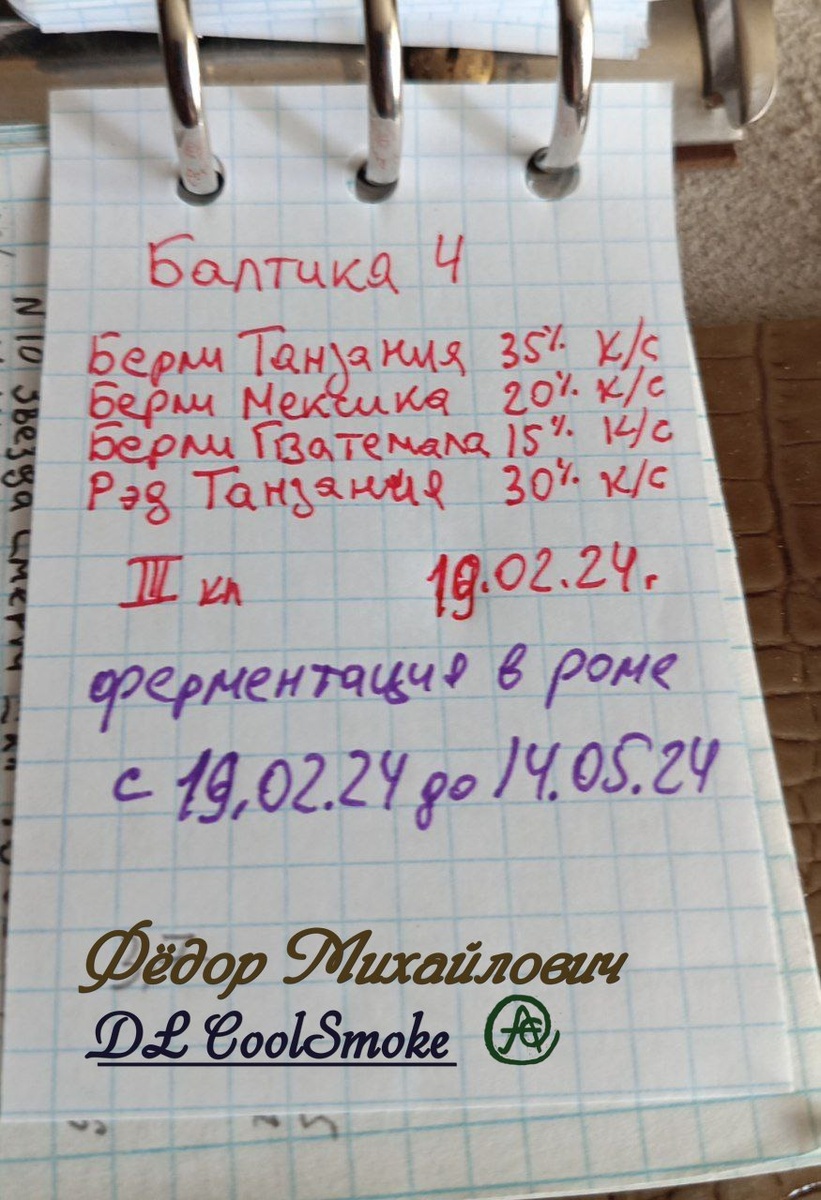 Балтика 4
Берли Танзания 35% к/с
Берли Мексика 20% к/с
Берли Гватемала 15% к/с
Рэд Танзания 30% к/с
III кл 19.02.24г.
ферментация в роме
с 19.02.24 до 14.05.24
Фёдор Михайлович
DL CoolSmoke
N 10 Звезда